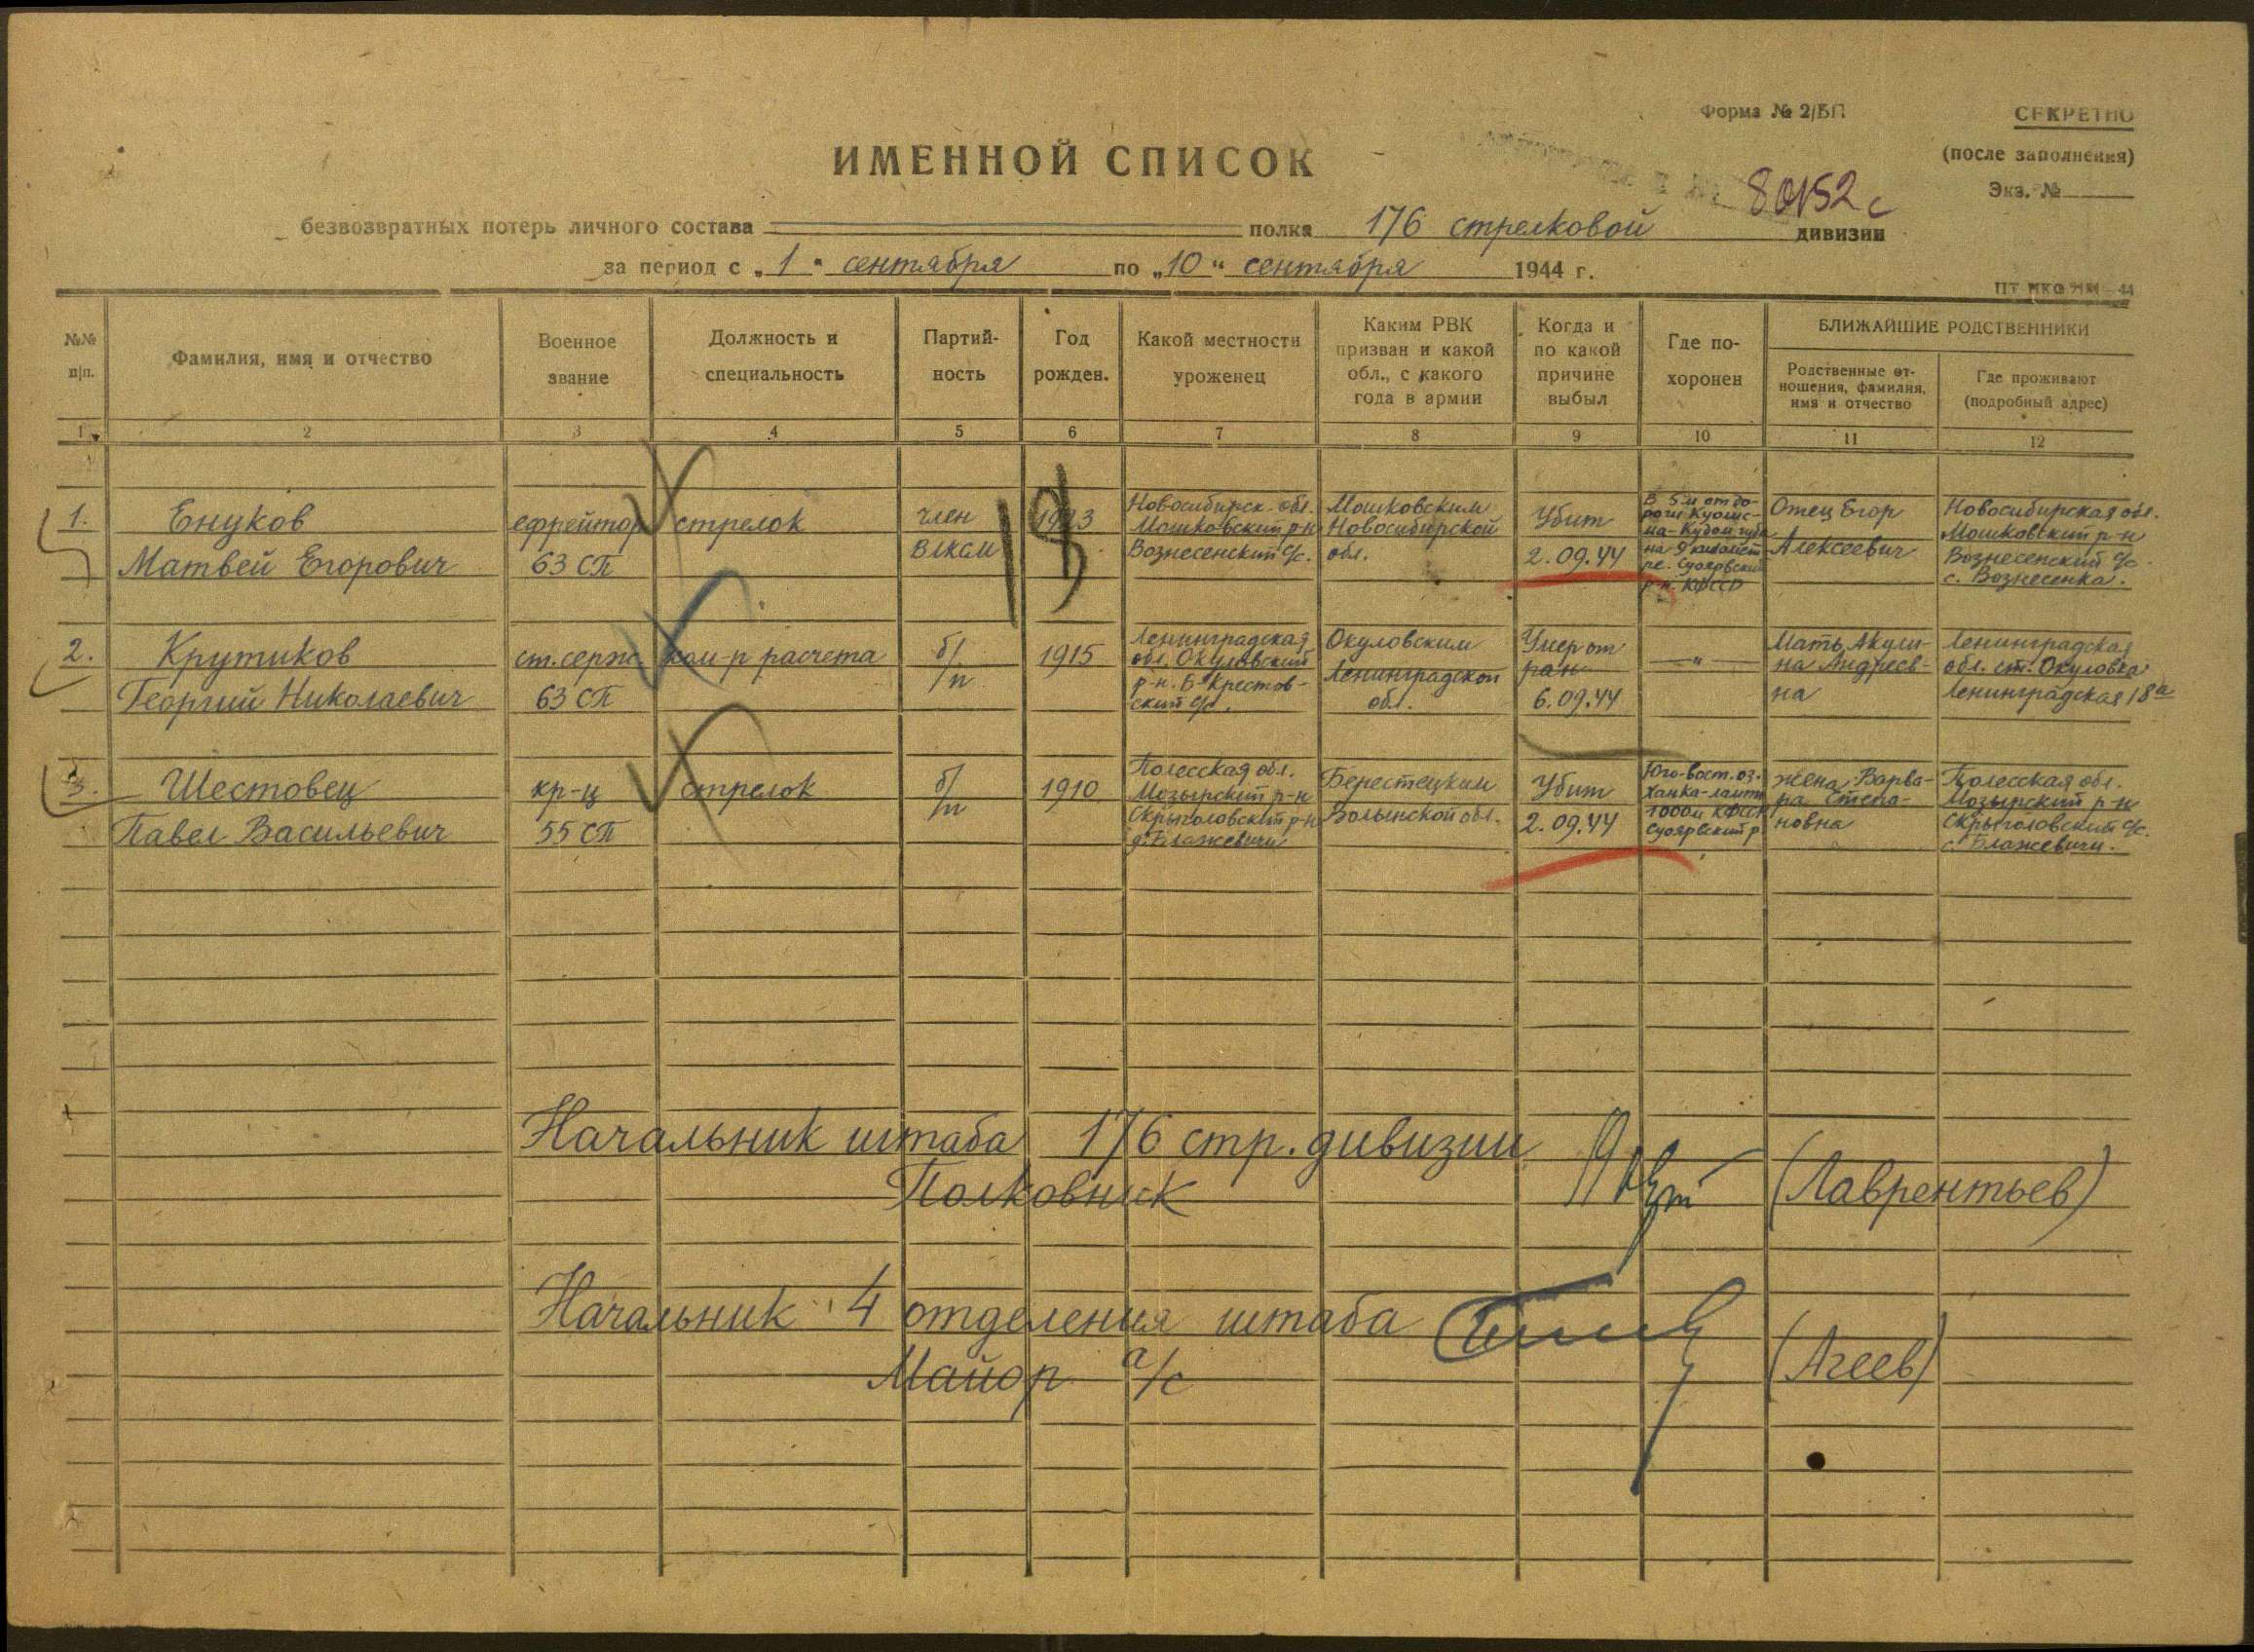 Форма № 2/БП
СЕКРЕТНО
(после заполнения)
Экз. №
ИМЕННОЙ СПИСОК
80152 с
безвозвратных потерь личного состава полка 176 стрелковой дивизии
за период с „1“ сентября по „10“ сентября 1944 г.
№№ п/п.
Фамилия, имя и отчество
Военное звание
Должность и специальность
Партий-
ность
Год рожден.
Какой местности уроженец
Каким РВК
призван и какой
обл., с какого
года в армии
Когда и
по какой
причине
выбыл
Где по-
хоронен
БЛИЖАЙШИЕ РОДСТВЕННИКИ
Родственные от-
ношения, фамилия,
имя и отчество
Где проживают
(подробный адрес)
1 2 3 4 5 6 7 8 9 10 11 12
1.
Енуков
Матвей Егорович
ефрейтор
63 СП
стрелок
член
ВЛКСМ
1923
Новосибирск. обл.
Мошковский р-н
Вознесенский с/с.
Мошковским
Новосибирской
обл.
Убит
2.09.44
В 5 м от до-
роги
на 9 километ
ре. Суоярвский
р-н. КФССР
Отец Егор
Алексеевич
Новосибирская обл.
Мошковский р-н
Вознесенский с/с
с. Вознесенка.
2.
Крутиков
Георгий Николаевич
ст. серж.
63 СП
ком-р расчета
б/п
1915
Ленинградская
обл. Окуловский
р-н. Б-Крестов-
ский с/с.
Окуловским
Ленинградской
обл.
Умер от
ран
6.09.44
— „ —
Мать Акули-
на Андреев-
на
Ленинградская
обл. ст. Окуловка
Ленинградская 18а
3.
Шестовец
Павел Васильевич
кр-ц
55 СП
стрелок
б/п
1910
Полесская обл.
Мозырский р-н
Скрыголовский р-н
д. Блажевичи
Берестецким
Волынской обл.
Убит
2.09.44
Юго-вост. оз.
Ханка-лампи
1000 м КФССР
Суоярвский р.
жена Варва-
ра Степа-
новна
Полесская обл.
Мозырский р-н
Скрыголовский с/с.
с. Блажевичи.
Начальник штаба 176 стр. дивизии
Полковник (Лаврентьев)
Начальник 4 отделения штаба
Майор а/с (Агеев)